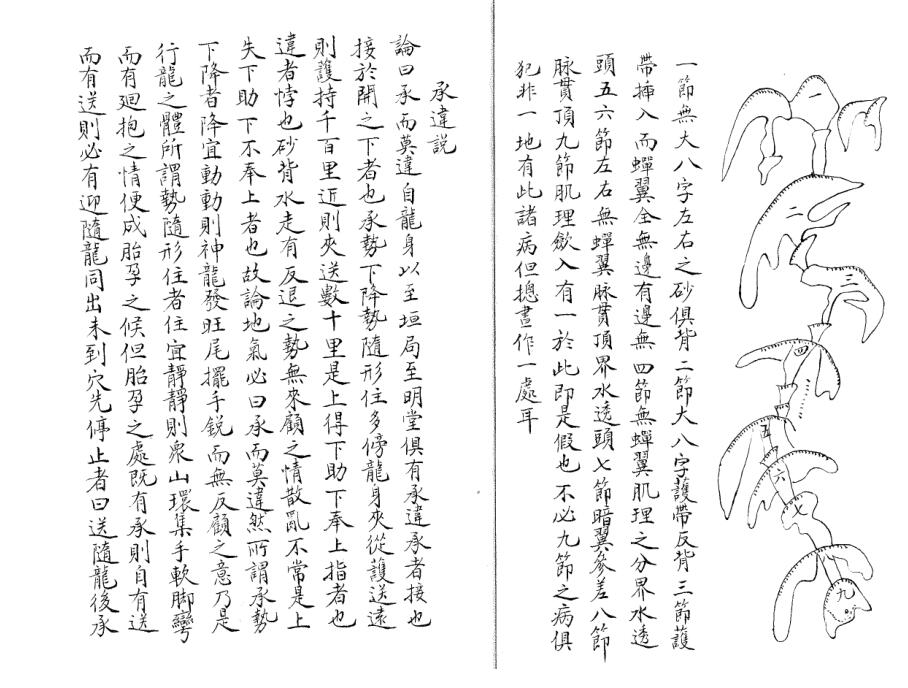 一
二
三
四
五
六
七
九
一節無大八字左右之砂俱背二節大八字護帶反背三節護
帶揷入而蟬翼全無邊有邊無四節無蟬翼肌理之分界水透
頭五六節左右無蟬翼脉貫頂界水透頭七節暗翼參差八節
脉貫頂九節肌理飲入有一於此即是假也不必九節之病俱
犯非一地有此諸病但摠畫作一處耳
承違説
論曰承而莫違自龍身以至垣局至明堂俱有承違承者接也
接於開之下者也承勢下降勢隨形住多傍龍身夾從護送遠
則護持千百里近則夾送數十里是上得下助下奉上指者也
違者悖也砂背水走有反退之勢無來顧之情散亂不常是上
失下助下不奉上者也故論地氣必曰承而莫違然所謂承勢
下降者降宜動動則神龍發旺尾擺手鋭而無反顧之意乃是
行龍之體所謂勢隨形住者住宜靜靜則衆山環集手軟脚彎
而有廻抱之情便成胎孕之候但胎孕之處既有承則自有送
而有送則必有迎隨龍同出未到穴先停止者曰送隨龍後承